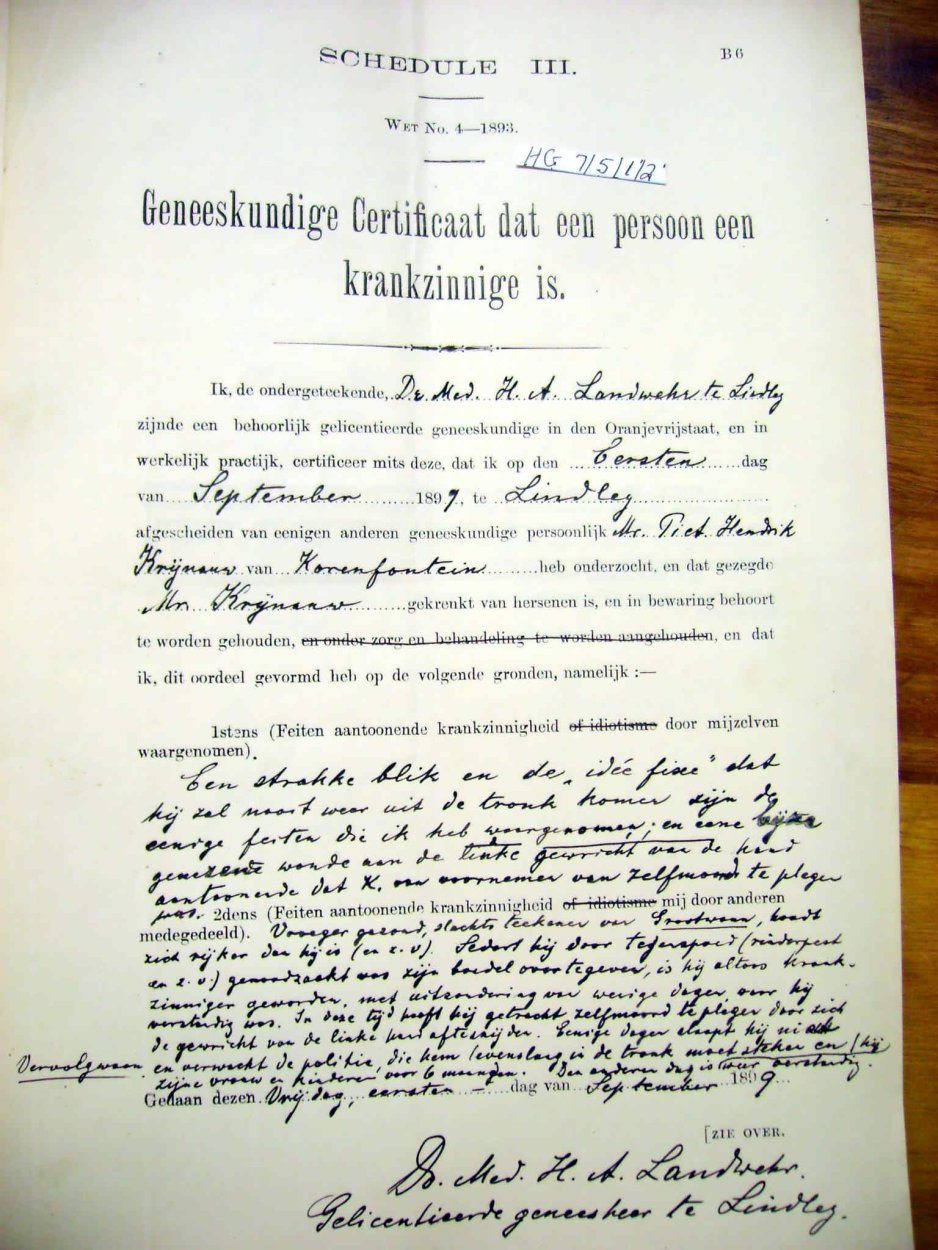 SCHEDULE III.
B 6
WET No. 4—1893.
HG 7/5/1/2
Geneeskundige Certificaat dat een persoon een
krankzinnige is.
Ik, de ondergeteekende, Dr. Med. H. A. Landwehr te Lindley
zijnde een behoorlijk gelicentieerde geneeskundige in den Oranjevrijstaat, en in
werkelijk practijk, certificeer mits deze, dat ik op den Eersten dag
van September 1899, te Lindley
afgescheiden van eenigen anderen geneeskundige persoonlijk Mr. Piet Hendrik
Krijnauw van Korenfontein heb onderzocht, en dat gezegde
Mr. Krijnauw gekrenkt van hersenen is, en in bewaring behoort
te worden gehouden, en onder zorg en behandeling te worden aangehouden, en dat
ik, dit oordeel gevormd heb op de volgende gronden, namelijk :—
1stens (Feiten aantoonende krankzinnigheid of idiotisme door mijzelven
waargenomen).
Een strakke blik en de „idée fixe" dat
hij zal nooit weer uit de tronk komen zijn de
eenige feiten die ik heb waargenomen; en eene
genezene wonde aan de linke gewricht van de hand
aantoonende dat K. van voornemen van zelfmoord te plegen
was. 2dens (Feiten aantoonende krankzinnigheid of idiotisme mij door anderen
medegedeeld). Vroeger gezond, slechts teekenen van Grootwaan, houdt
zich rijker dan hij is (en z. v). Sedert hij door tegenspoed (rinderpest
en z. v.) genoodzaakt was zijn boedel overtegeven, is hij altoos krank-
zinniger geworden, met uitzondering van wenige dagen waar hij
verstandig was. In deze tijd heeft hij getracht zelfmoord te plegen door zich
de gewricht van de linke hand aftesnijden. Eenige dagen slaapt hij niet
Vervolgwaan en verwacht de politie, die hem levenslang in de tronk moet steken en / hij
zijne vrouw en kinderen voor 6 maanden. Den anderen dag is weer verstandig.
Gedaan dezen Vrijdag, eersten – dag van September 1899
[ZIE OVER.
Dr. Med. H. A. Landwehr.
Gelicentieerde geneesheer te Lindley.